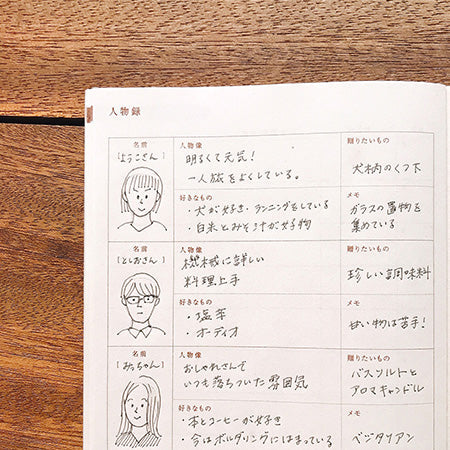 人物録
名前
[ようこさん]
人物像
明るくて元気！
一人旅をよくしている。
贈りたいもの
犬柄のくつ下
好きなもの
・犬が好き・ランニングをしている
・白米とみそ汁が好物
メモ
ガラスの置物を
集めている
名前
[としおさん]
人物像
機械に詳しい
料理上手
贈りたいもの
珍しい調味料
好きなもの
・塩辛
・オーディオ
メモ
甘い物は苦手！
名前
[みっちゃん]
人物像
おしゃれさんで
いつも落ちついた雰囲気
贈りたいもの
バスソルトと
アロマキャンドル
好きなもの
・本とコーヒーが好き
・今はボルダリングにはまっている
メモ
ベジタリアン